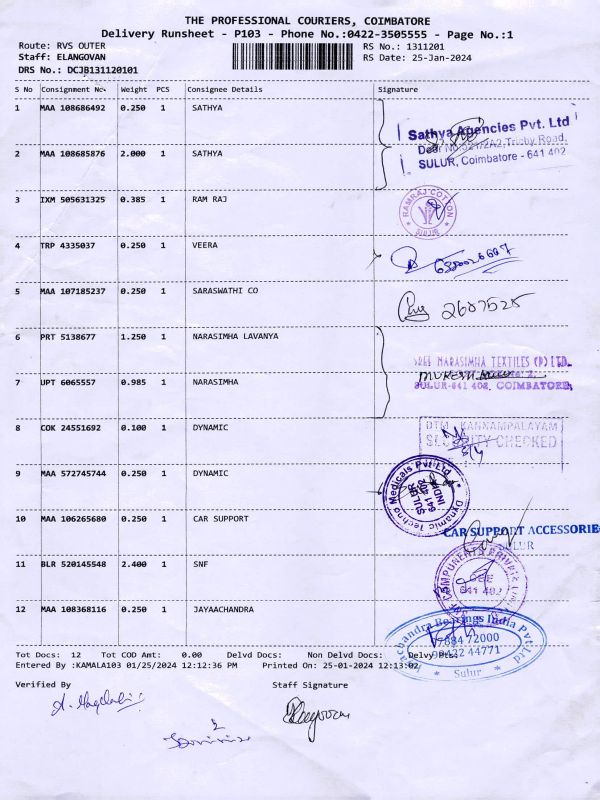 THE PROFESSIONAL COURIERS, COIMBATORE
Delivery Runsheet - P103 - Phone No.:0422-3505555 - Page No.:1
Route: RVS OUTER RS No.: 1311201
Staff: ELANGOVAN RS Date: 25-Jan-2024
DRS No.: DCJB131120101
S No Consignment No. Weight PCS Consignee Details Signature
1 MAA 108686492 0.250 1 SATHYA
Sathya Agencies Pvt. Ltd
Trichy Road,
SULUR, Coimbatore - 641 402
2 MAA 108685876 2.000 1 SATHYA
3 IXM 505631325 0.385 1 RAM RAJ
RAMRAJ COTTON
4 TRP 4335037 0.250 1 VEERA
5 MAA 107185237 0.250 1 SARASWATHI CO
2607525
6 PRT 5138677 1.250 1 NARASIMHA LAVANYA
SREE NARASIMHA TEXTILES (P) LTD.
MUKESH
SULUR-641 402, COIMBATORE
7 UPT 6065557 0.985 1 NARASIMHA
8 COK 24551692 0.100 1 DYNAMIC
DTM KANNAMPALAYAM
SECURITY CHECKED
9 MAA 572745744 0.250 1 DYNAMIC
Dynamic Techno Medicals Pvt Ltd
SULUR
641 402
INDIA
10 MAA 106265680 0.250 1 CAR SUPPORT
CAR SUPPORT ACCESSORIE
SULUR
11 BLR 520145548 2.400 1 SNF
641 402
12 MAA 108368116 0.250 1 JAYAACHANDRA
Bearings India Pvt Ltd
72000
44771
* Sulur *
Tot Docs: 12 Tot COD Amt: 0.00 Delvd Docs: Non Delvd Docs: Delvy Pts:
Entered By :KAMALA103 01/25/2024 12:12:36 PM Printed On: 25-01-2024 12:13:02
Verified By Staff Signature